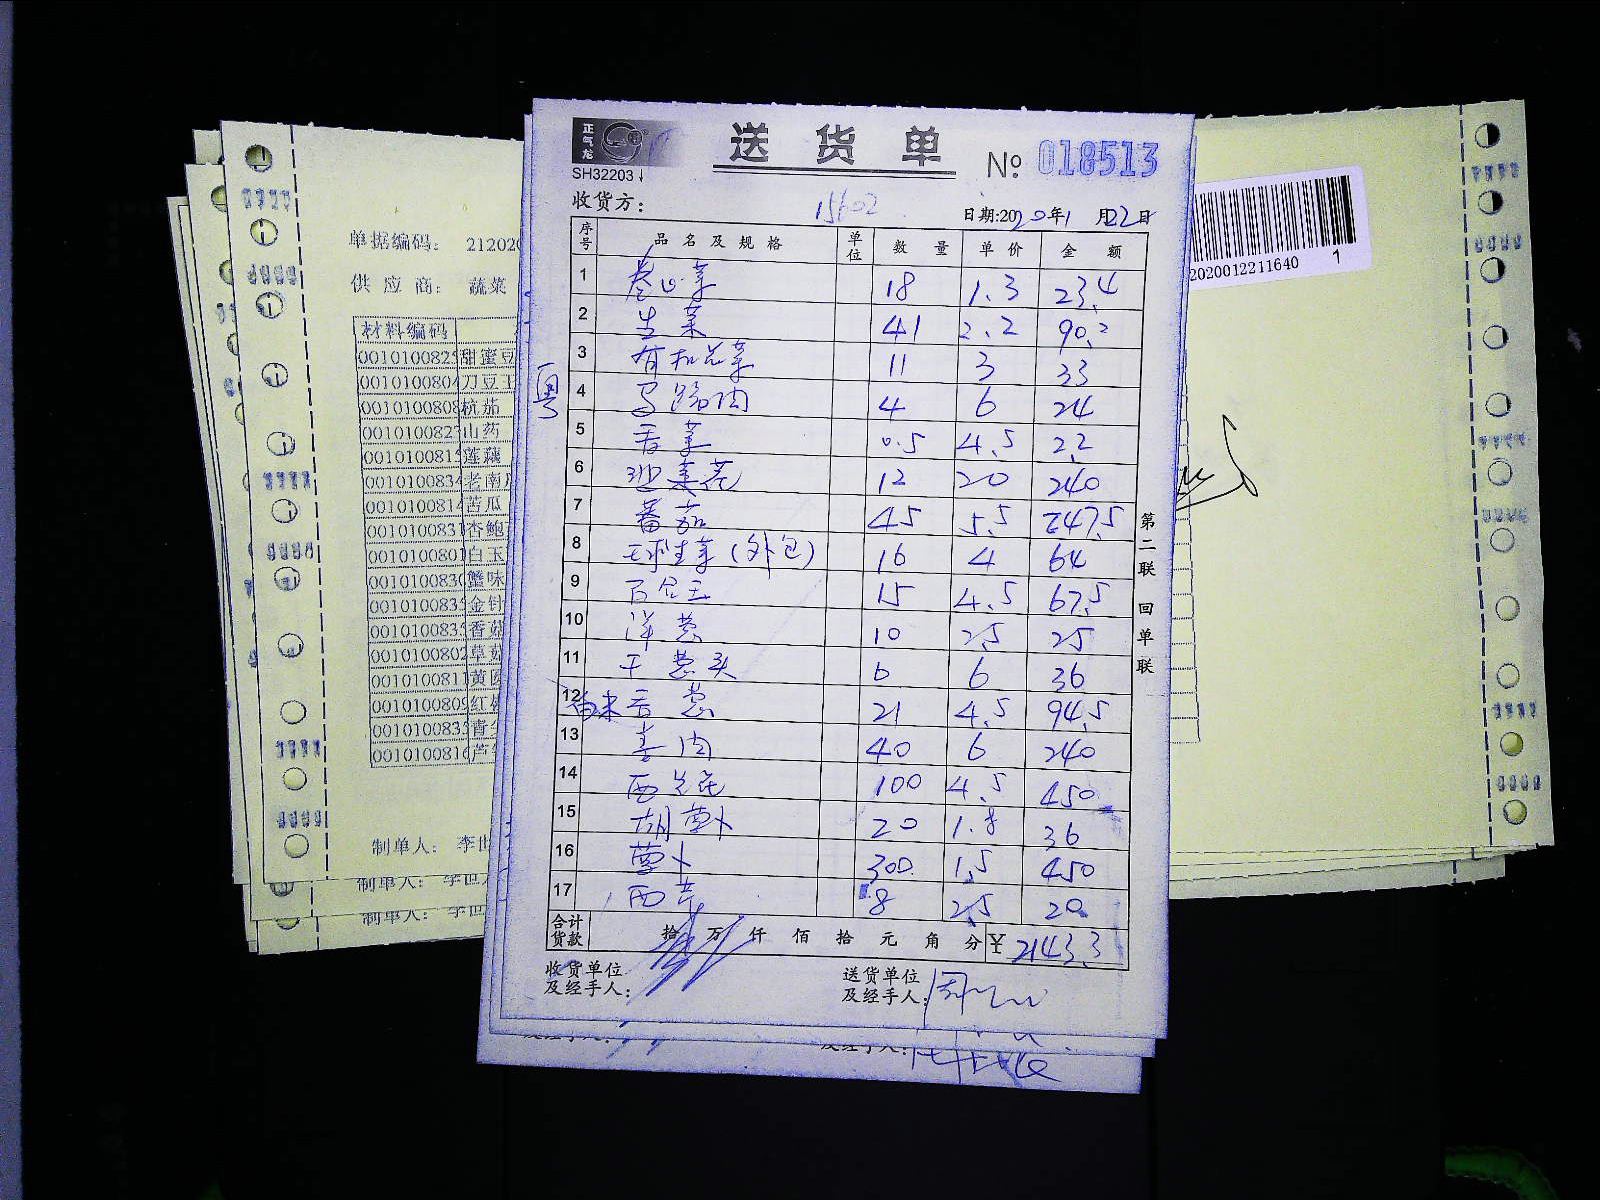 正气龙
SH32203
送货单
№ 018513
收货方: 15602
日期:2020年1月22日
序号 品名及规格 单位 数量 单价 金额
1 卷心菜 18 1.3 23.4
2 生菜 41 2.2 90.2
3 有机花菜 11 3 33
4 6 24
5 香菜 0.5 4.5 2.2
6 12 20 240
7 番茄 45 5.5 247.5
8 球生菜(外包) 16 4 64
9 15 4.5 67.5
10 洋葱 10 2.5 25
11 干葱头 6 6 36
12 香葱 21 4.5 94.5
13 姜肉 40 6 240
14 西兰花 100 4.5 450
15 胡萝卜 20 1.8 36
16 萝卜 300 1.5 450
17 西芹 8 2.5 20
合计货款 拾万仟佰拾元角分 ¥ 2143.3
收货单位及经手人:
送货单位及经手人:
第二联 回单联
粤
单据编码: 212020
供应商: 蔬菜
材料编码
001010082 甜蜜豆
001010080 刀豆
001010080 杭茄
001010082 山药
001010081 莲藕
001010083 老南
001010081 苦瓜
001010083 杏鲍
001010080 白玉
001010083 蟹味
001010083 金针
001010083 香菇
001010080 草菇
001010081 黄
001010080 红
001010083 青
001010081 芦
制单人: 李世
制单人: 李世
制单人: 李世
2020012211640 1